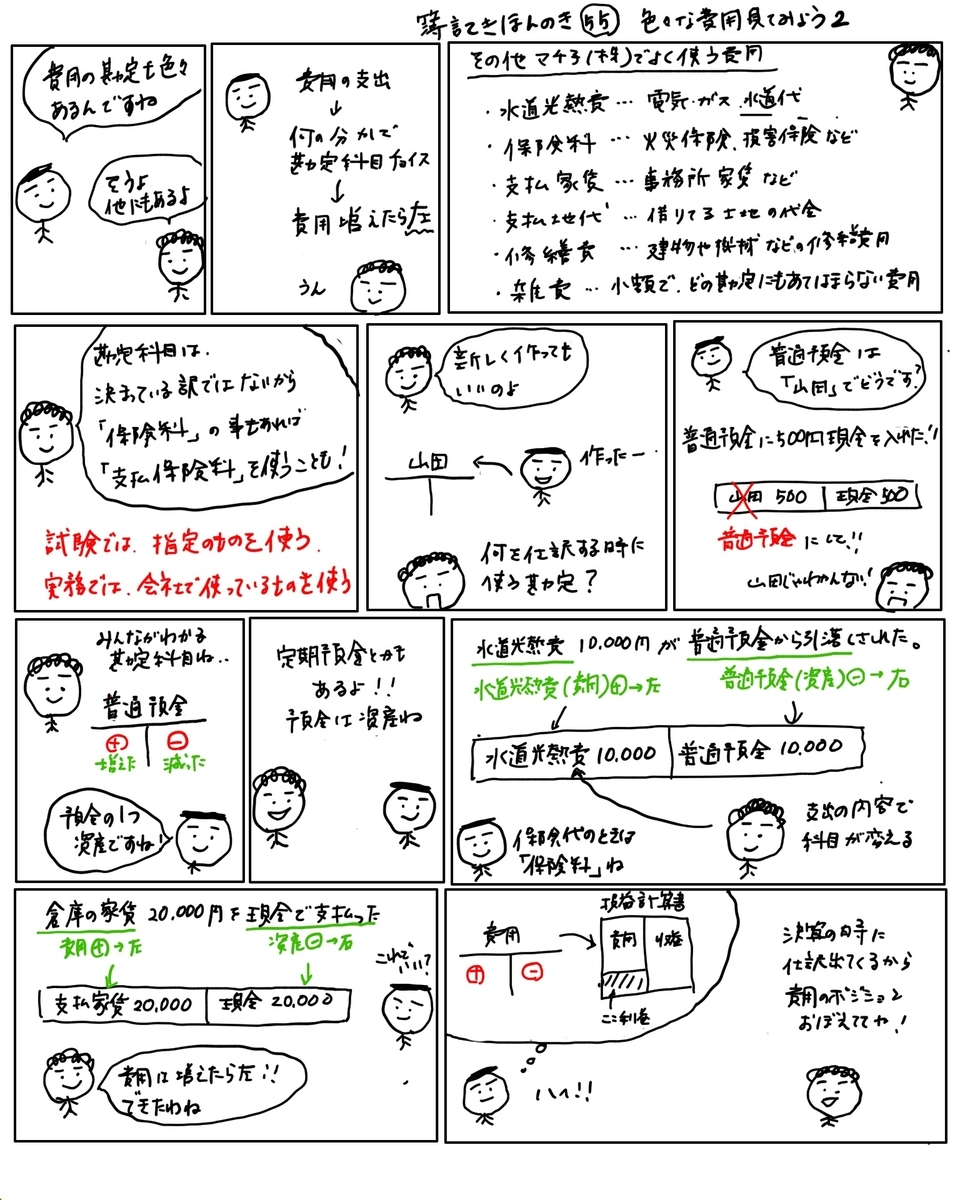 簿記きほんのき 55 色々な費用見てみよう2
費用の勘定も色々
あるんですね
そうよ
他にもあるよ
費用の支出
↓
何の分かで
勘定科目チョイス
↓
費用増えたら左
うん
その他 マチ子(株)でよく使う費用
・水道光熱費… 電気・ガス 水道代
・保険料 … 火災保険、損害保険など
・支払家賃 … 事務所家賃など
・支払地代 … 借りてる土地の代金
・修繕費 … 建物や機械などの修繕費用
・雑費 … 小額で、どの勘定にもあてはまらない費用
勘定科目は、
決まっている訳ではないから
「保険料」の事もあれば
「支払保険料」を使うことも!
試験では、指定のものを使う、
実務では、会社で使っているものを使う
新しく作っても
いいのよ
山田
作ったー
何を仕訳する時に
使う勘定?
普通預金は
「山田」でどうです?
普通預金に500円現金を入れた!!
山田 500 現金 500
普通預金にして!!
山田じゃわかんない!
みんながわかる
勘定科目ね..
普通預金
+ -
増えた 減った
預金の1つ
資産ですね!
定期預金とかも
あるよ!!
預金は資産ね
水道光熱費 10,000円が普通預金から引落しされた。
水道光熱費(費用)+→左 普通預金(資産)-→右
水道光熱費 10,000 普通預金 10,000
支出の内容で
科目が変える
保険代のときは
「保険料」ね
倉庫の家賃 20,000円を現金で支払った
費用+→左 資産-→右
これで
いい?
支払家賃 20,000 現金 20,000
費用は増えたら左!!
できたわね
損益計算書
費用 → 費用 収益
+ -
ここ利益
決算の時に
仕訳出てくるから
費用のポジション
おぼえててね!
ハイ!!